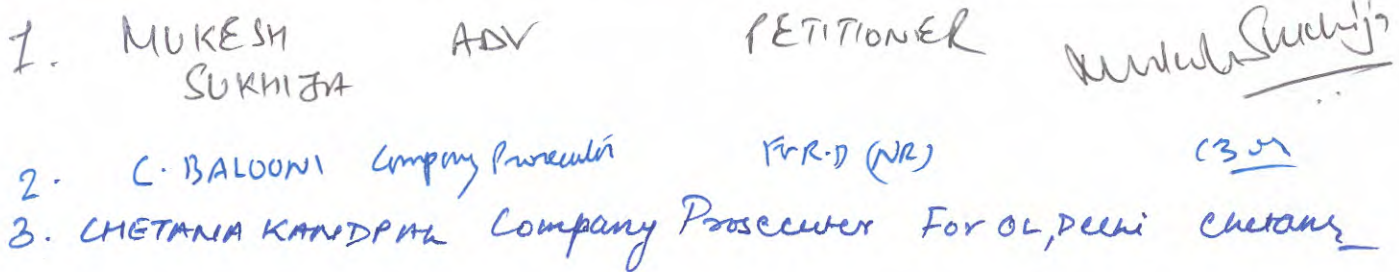 1. MUKESH SUKHIJA ADV PETITIONER Mukesh Sukhija
2. C. BALOONI Company Prosecutor For R.D (NR)
3. CHETANA KANDPAL Company Prosecuter For OL, Delhi Chetana